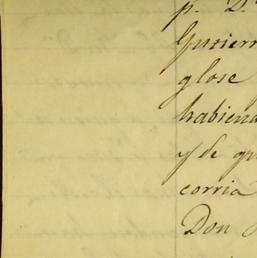 p. D.
Gutierr
glose
habiend
y de qu
corria
Don